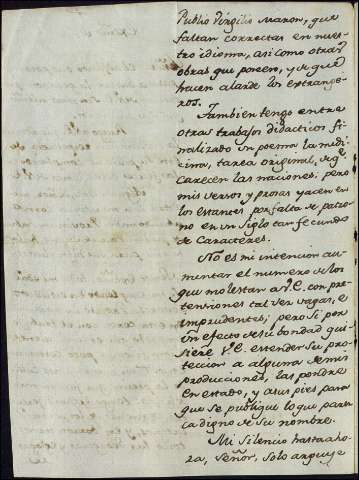 Publio Virgilio Maron, que
faltan correctas en nues-
tro idioma, asi como otras
obras que poceen, y de que
hacen alarde los extrange-
ros.
Tambien tengo entre
otras trabajos didacticos fi-
nalizado un poema la medi-
cina, tarea original, de q.e
carecen las naciones; pero
mis versos y prosas yacen en
los estantes por falta de patro-
no en un siglo tan fecundo
de Caracteres.
No es mi intencion au-
mentar el numero de los
que molestan a V.E. con pre-
tensiones tal vez vagas, e
imprudentes; pero si por
un efecto de su bondad qui-
siere V.E. estender su pro-
teccion a alguna de mis
producciones, las pondre
en estado, y a sus pies para
que se publique lo que parez-
ca digno de su nombre.
Mi silencio hasta aho-
ra, Señor, solo arguye